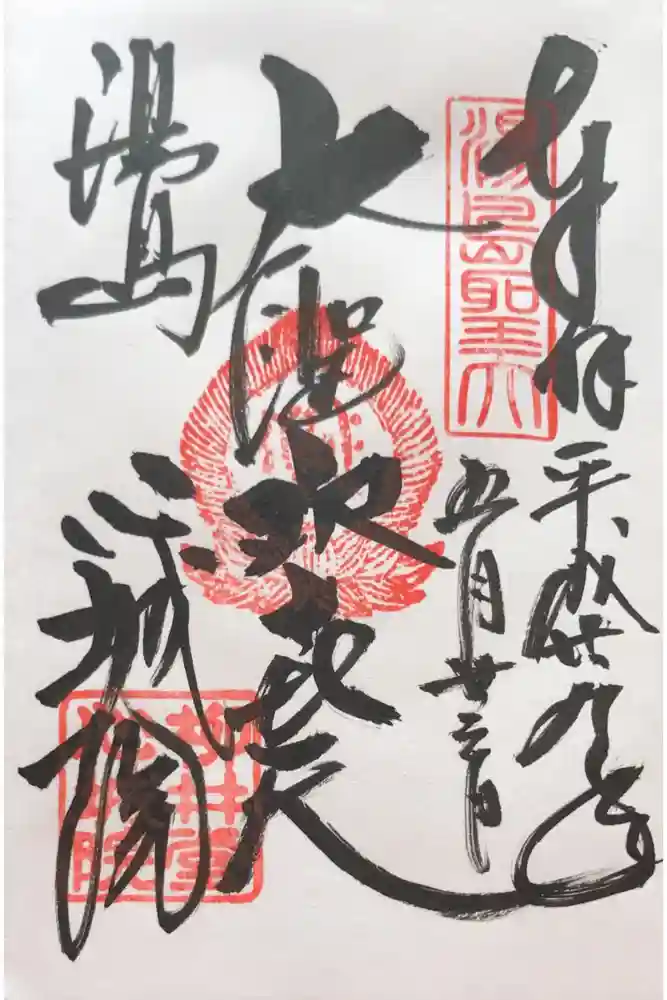 奉拝
湯島聖天
平成廿九年
五月廿三日
大聖歓喜天
湯島
心城院
柳井堂
心城院